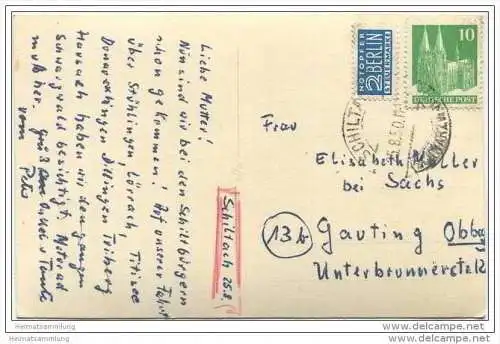 Liebe Mutter!
Nun sind wir bei den Schiltbürgern
schon gekommen! Auf unserer Fahrt
über Stühlingen, Lörrach, Titisee
Donaueschingen Villingen Triberg
Hausach haben wir den ganzen
Schwarzwald besichtigt. Motorad
Gruß an Onkel u Tante
vom Peter
Schiltach 25.8.
NOTOPFER
2 BERLIN
STEUERMARKE
10
DEUTSCHE POST
SCHILTA
Frau
Elisabeth Müller
bei Sachs
13b
Gauting Obby
Unterbrunnerstr 12
Heimatsammlung
http://www.heimatsammlung.de
Heimatsammlung
http://www.heimatsammlung.de